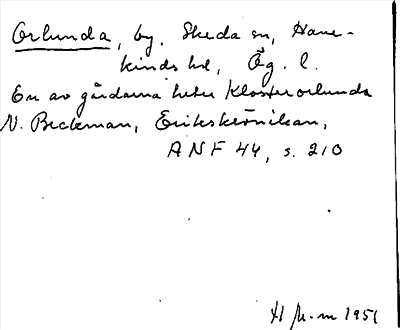 Orlunda, by. Skeda sn, Hane-
kinds hd, Ög. l.
En av gårdarna heter Klosterorlunda
N. Beckman, Erikskrönikan,
ANF 44, s. 210
1951